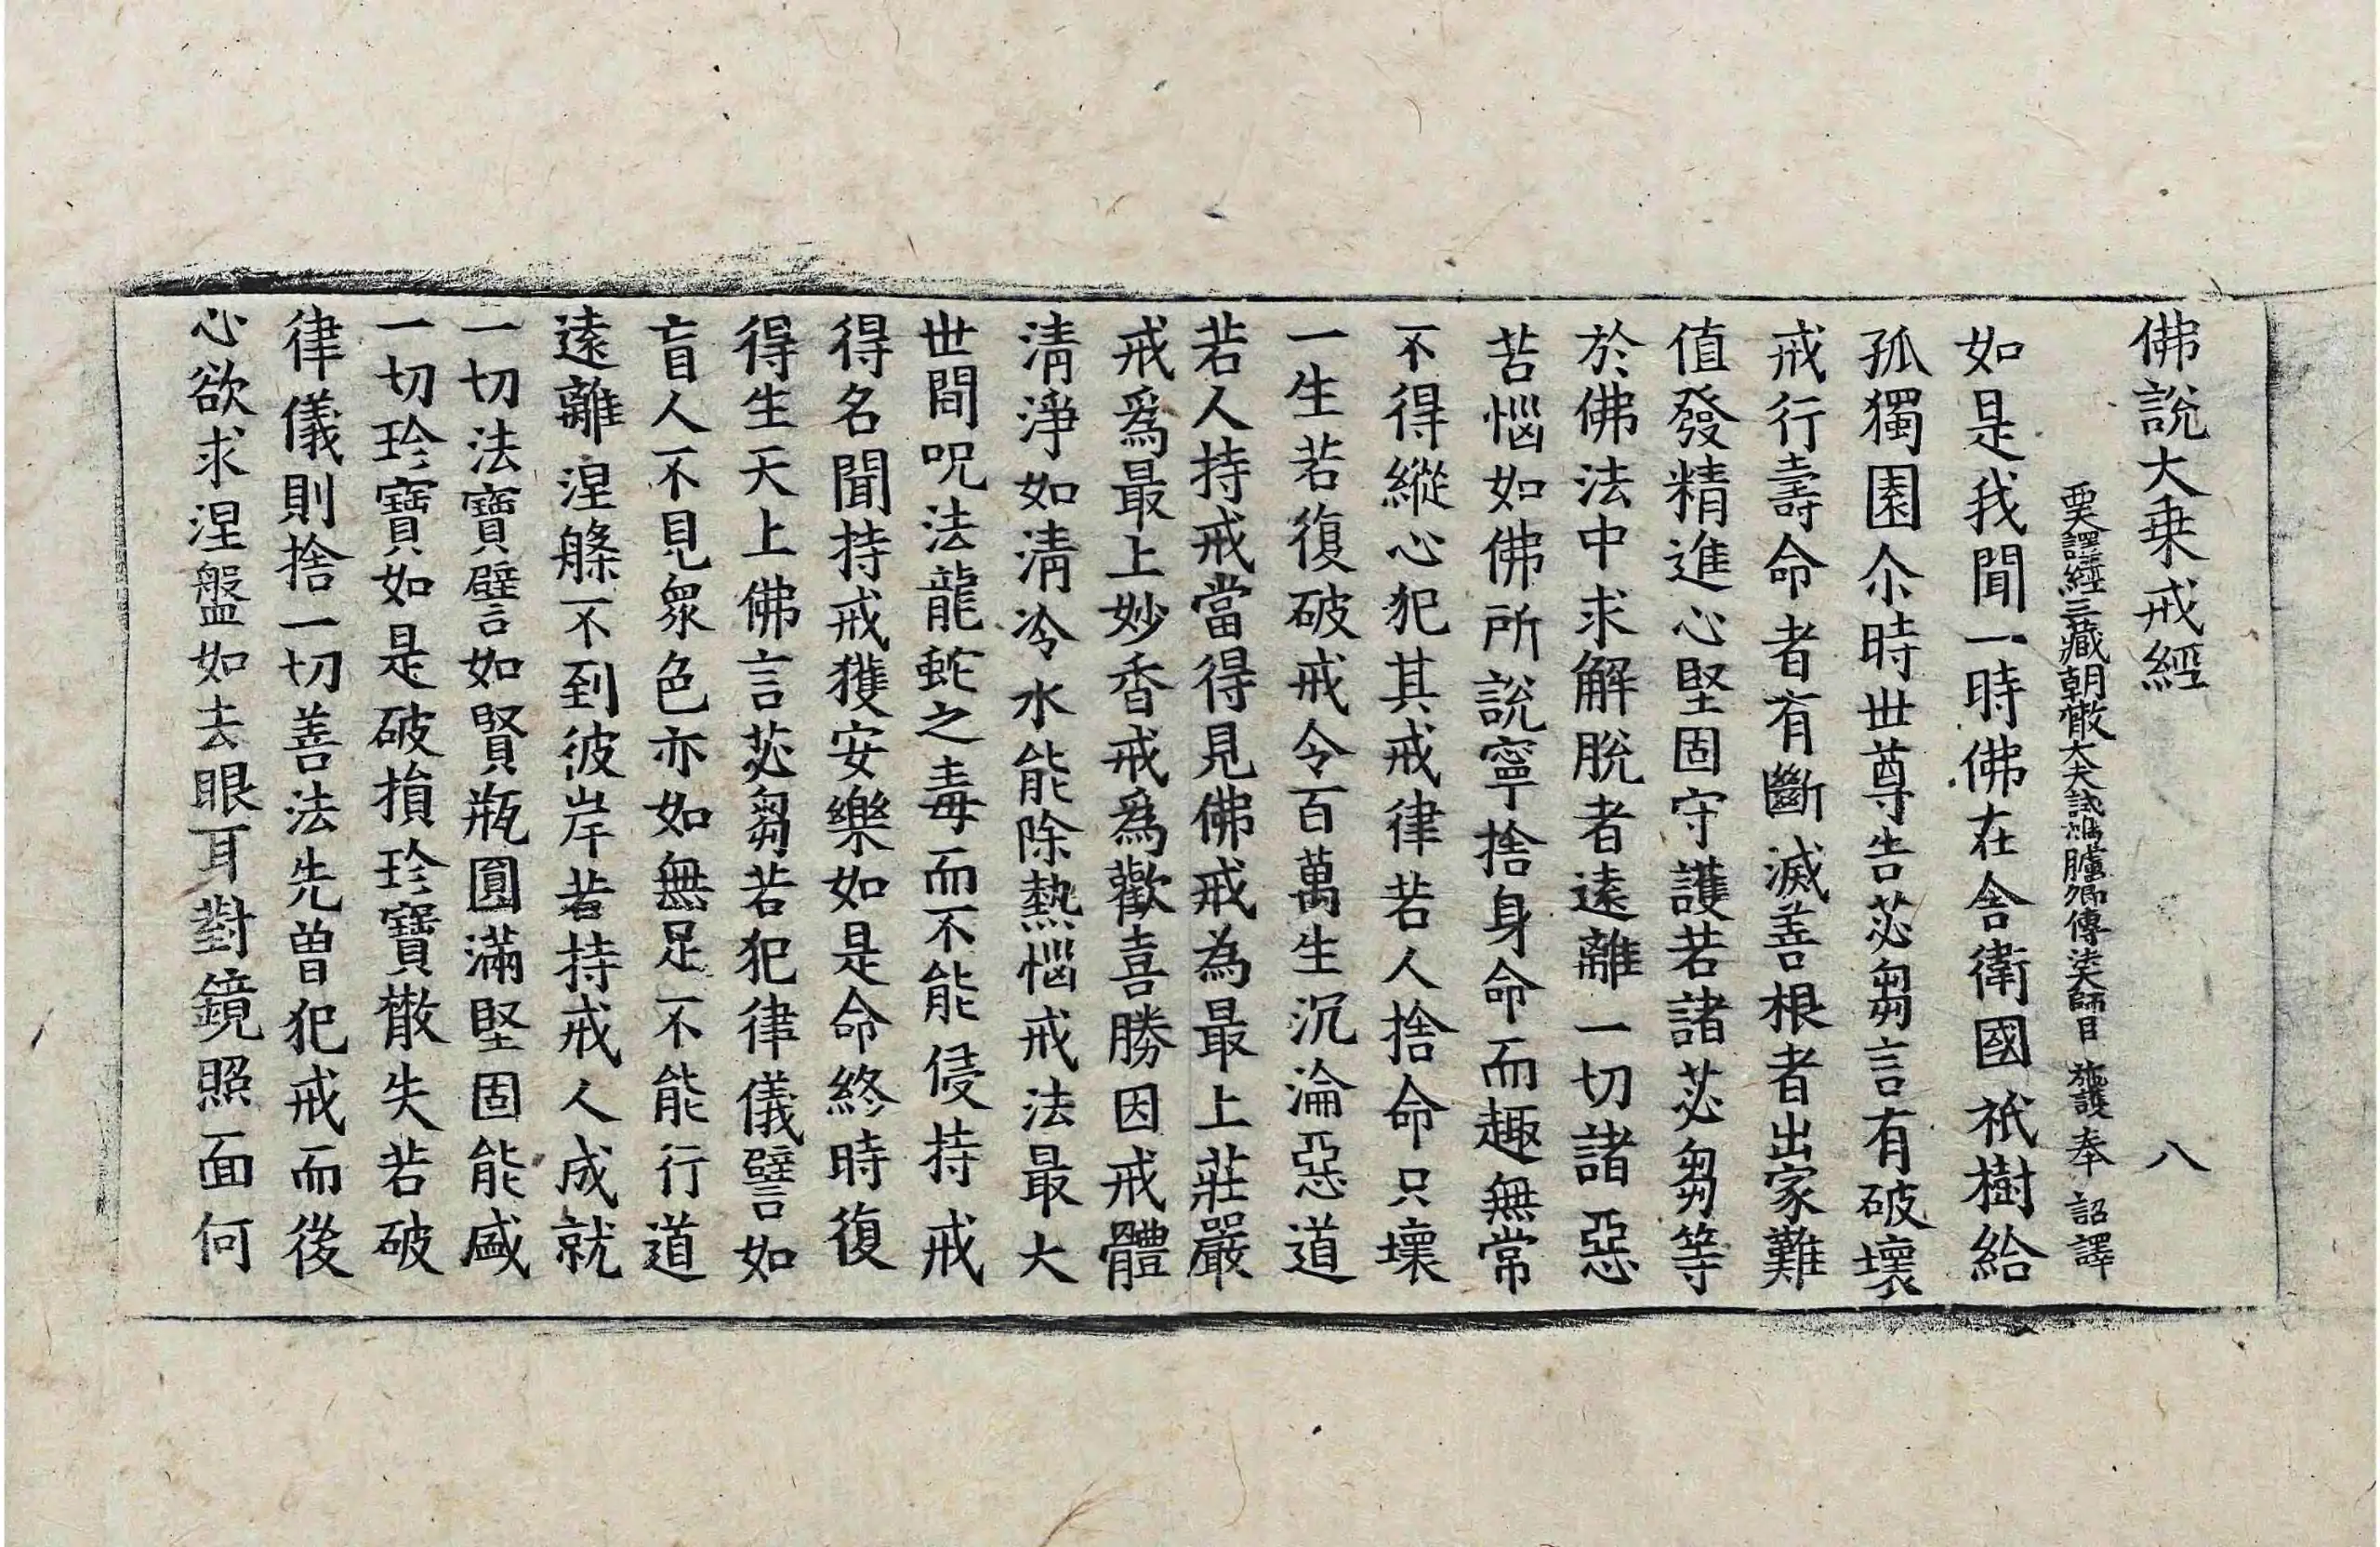 佛說大乗戒經 八
譯經三藏朝散大夫試鴻臚卿傳法大師臣 施護 奉 詔譯
如是我聞一時佛在舍衛國祇樹給
孤獨園尒時世尊告苾芻言有破壞
戒行壽命者有斷滅善根者出家難
值發精進心堅固守護若諸苾芻等
於佛法中求解脫者遠離一切諸惡
苦惱如佛所說寧捨身命而趣無常
不得縱心犯其戒律若人捨命只壞
一生若復破戒令百萬生沉淪惡道
若人持戒當得見佛戒為最上莊嚴
戒爲最上妙香戒爲歡喜勝因戒體
清淨如清冷水能除熱惱戒法最大
世間呪法龍蛇之毒而不能侵持戒
得名聞持戒獲安樂如是命終時復
得生天上佛言苾芻若犯律儀譬如
盲人不見衆色亦如無足不能行道
遠離涅槃不到彼岸若持戒人成就
一切法寶譬如賢瓶圓滿堅固能盛
一切珍寶如是破損珍寶散失若破
律儀則捨一切善法先曾犯戒而後
心欲求涅盤如去眼耳對鏡照面何